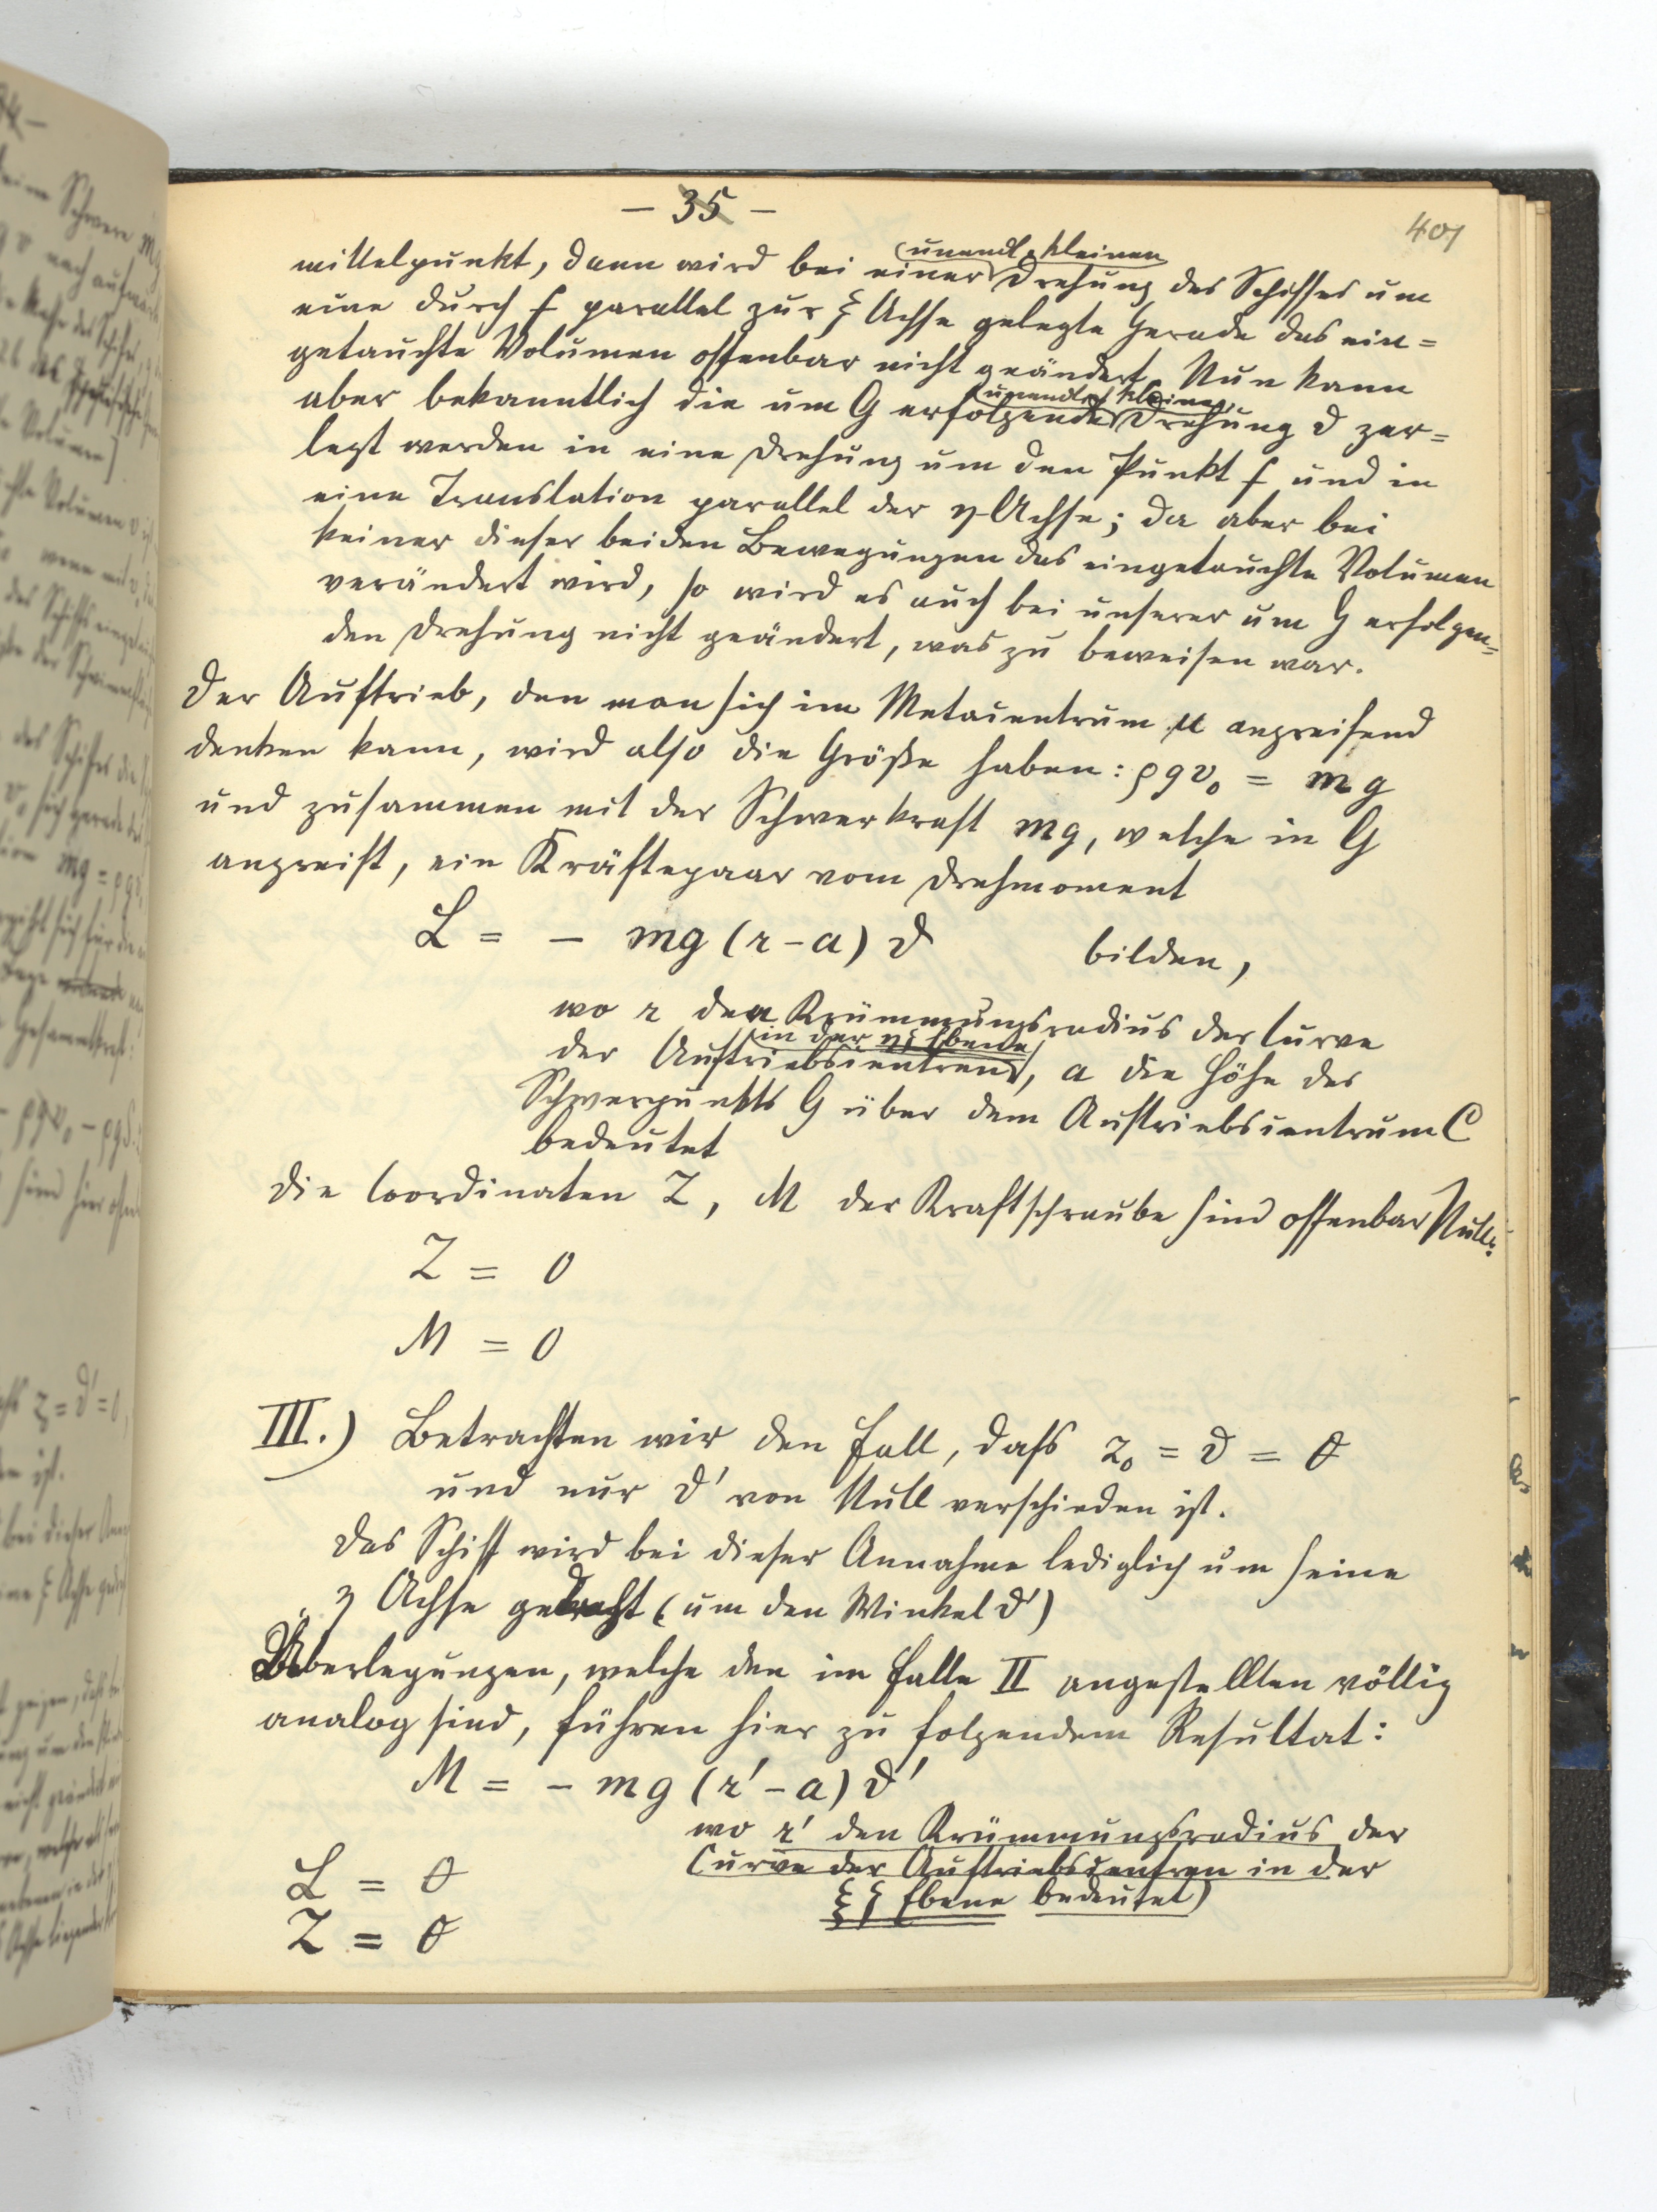 - 35 -
401
mittelpunkt, dann wird bei einer (unendl. kleinen) Drehung des Schiffes um
eine durch F parallel zur ξ Achse gelegte Gerade das ein=
getauchte Volumen offenbar nicht geändert. Nun kann
aber bekanntlich die um G erfolgende (unendlich kleine) Drehung ϑ zer=
legt werden in eine Drehung um den Punkt F und in
eine Translation parallel der η-Achse; da aber bei
keiner dieser beiden Bewegungen das eingetauchte Volumen
verändert wird, so wird es auch bei unserer um G erfolgen=
den Drehung nicht geändert, was zu beweisen war.
Der Auftrieb, den man sich im Metacentrum μ angreifend
denken kann, wird also die Größe haben: ρgv₀ = mg
und zusammen mit der Schwerkraft mg, welche in G
angreift, ein Kräftepaar vom Drehmoment
L = - mg (r-a) ϑ bilden,
wo r den Krümmungsradius der Curve
der Auftriebscentren (in der ηζ Ebene), a die Höhe des
Schwerpunkts G über dem Auftriebscentrum C
bedeutet
Die Coordinaten Z, M der Kraftschraube sind offenbar Null:
Z = 0
M = 0
III.) Betrachten wir den Fall, dafs z₀ = ϑ = 0
und nur ϑ' von Null verschieden ist.
Das Schiff wird bei dieser Annahme lediglich um seine
η Achse gedreht (um den Winkel ϑ')
Überlegungen, welche den im Falle II angestellten völlig
analog sind, führen hier zu folgendem Resultat:
M = - mg (r'-a) ϑ'
wo r' den Krümmungsradius der
Curve der Auftriebscentren in der
ξζ Ebene bedeutet)
L = 0
Z = 0